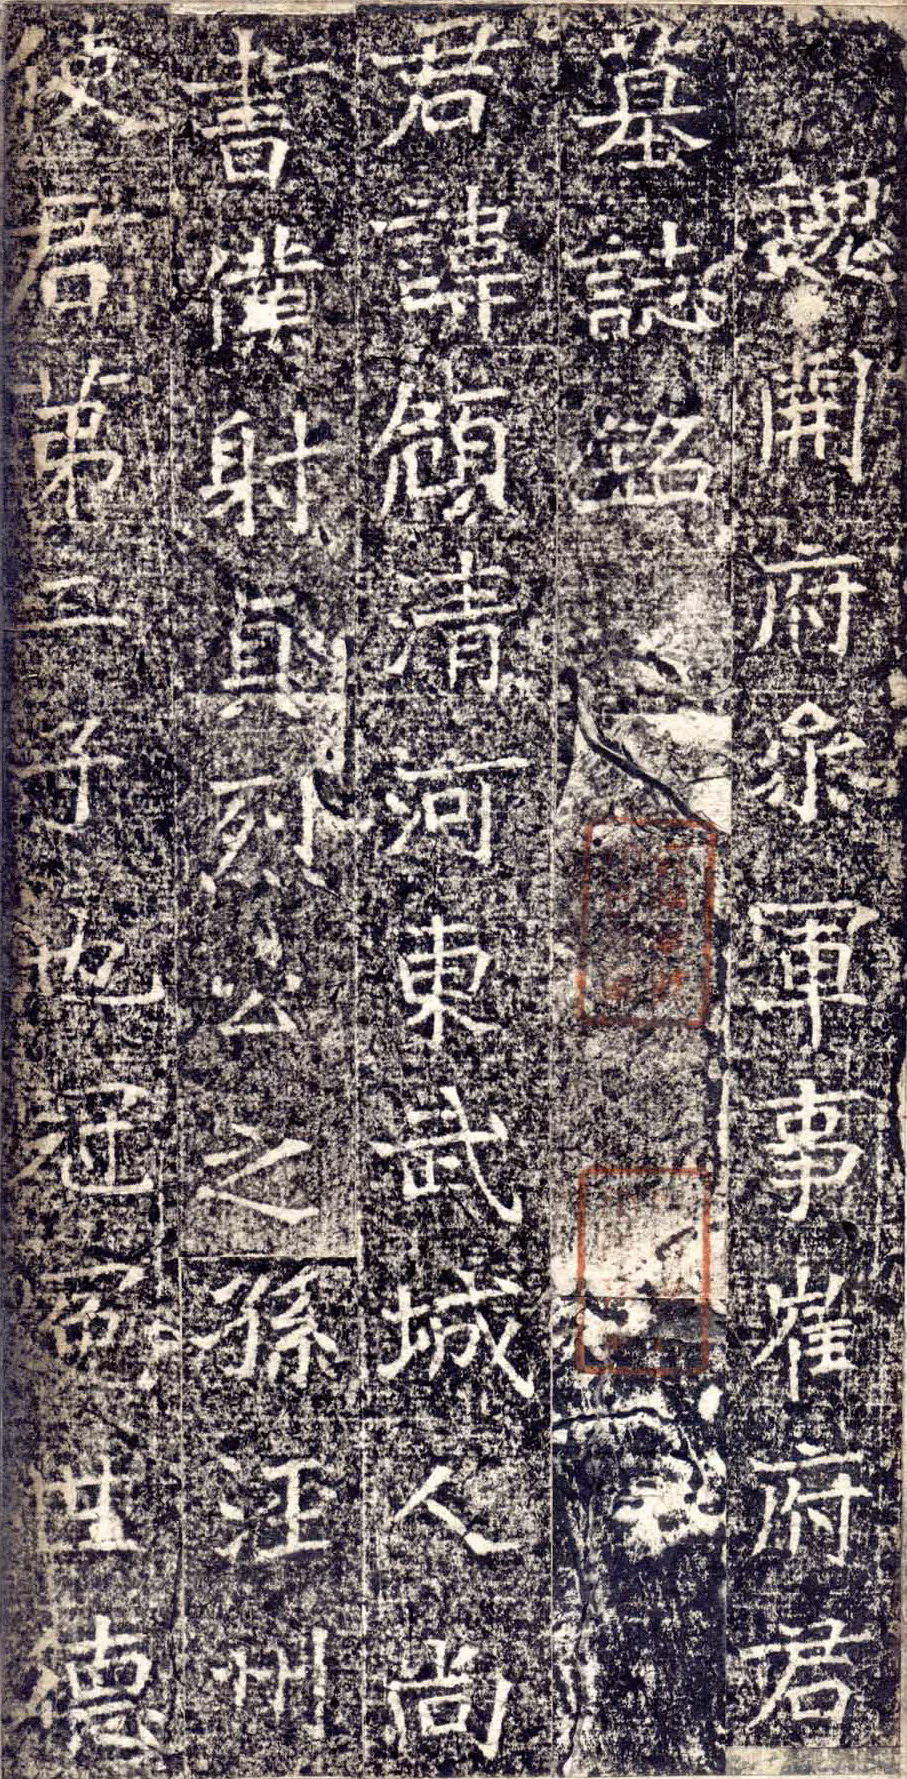 魏開府參軍事崔府君
墓誌銘
君諱頠清河東武城人尚
書僕射貞烈公之孫汪州
使君第三子也冠冕世德